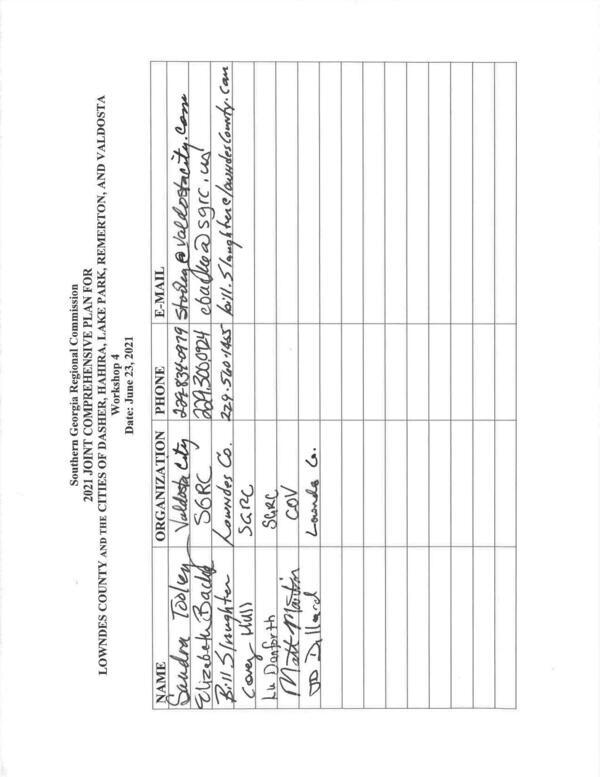 Southern Georgia Regional Commission
2021 JOINT COMPREHENSIVE PLAN FOR
LOWNDES COUNTY AND THE CITIES OF DASHER, HAHIRA, LAKE PARK, REMERTON, AND VALDOSTA
Workshop 4
Date: June 23, 2021
NAME ORGANIZATION PHONE E-MAIL
Sandra Tooley Valdosta City 229-834-0979 stooley@valdostacity.com
Elizabeth Backe SGRC 229.300.0924 ebacke@sgrc.us
Bill Slaughter Lowndes Co. 229-560-1465 bill.slaughter@lowndesCounty.com
Corey Hull SGRC
Liz Danforth SGRC
Matt Martin COV
JD Dillard Lowndes Co.